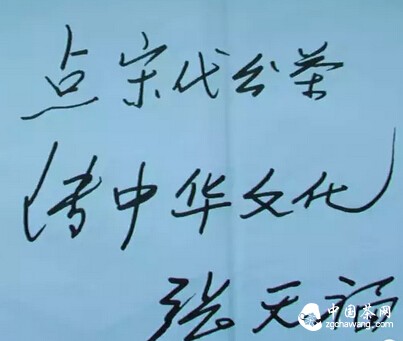 点宋代分茶
传中华文化
张天福
中国茶网
zgchawang.com